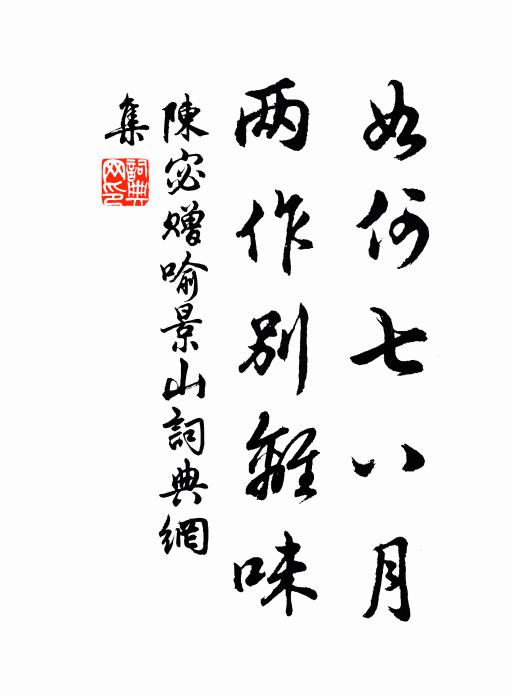 如何七八月
两作别離味
陳宓赠喻景山詞典網
集
詞典
网印